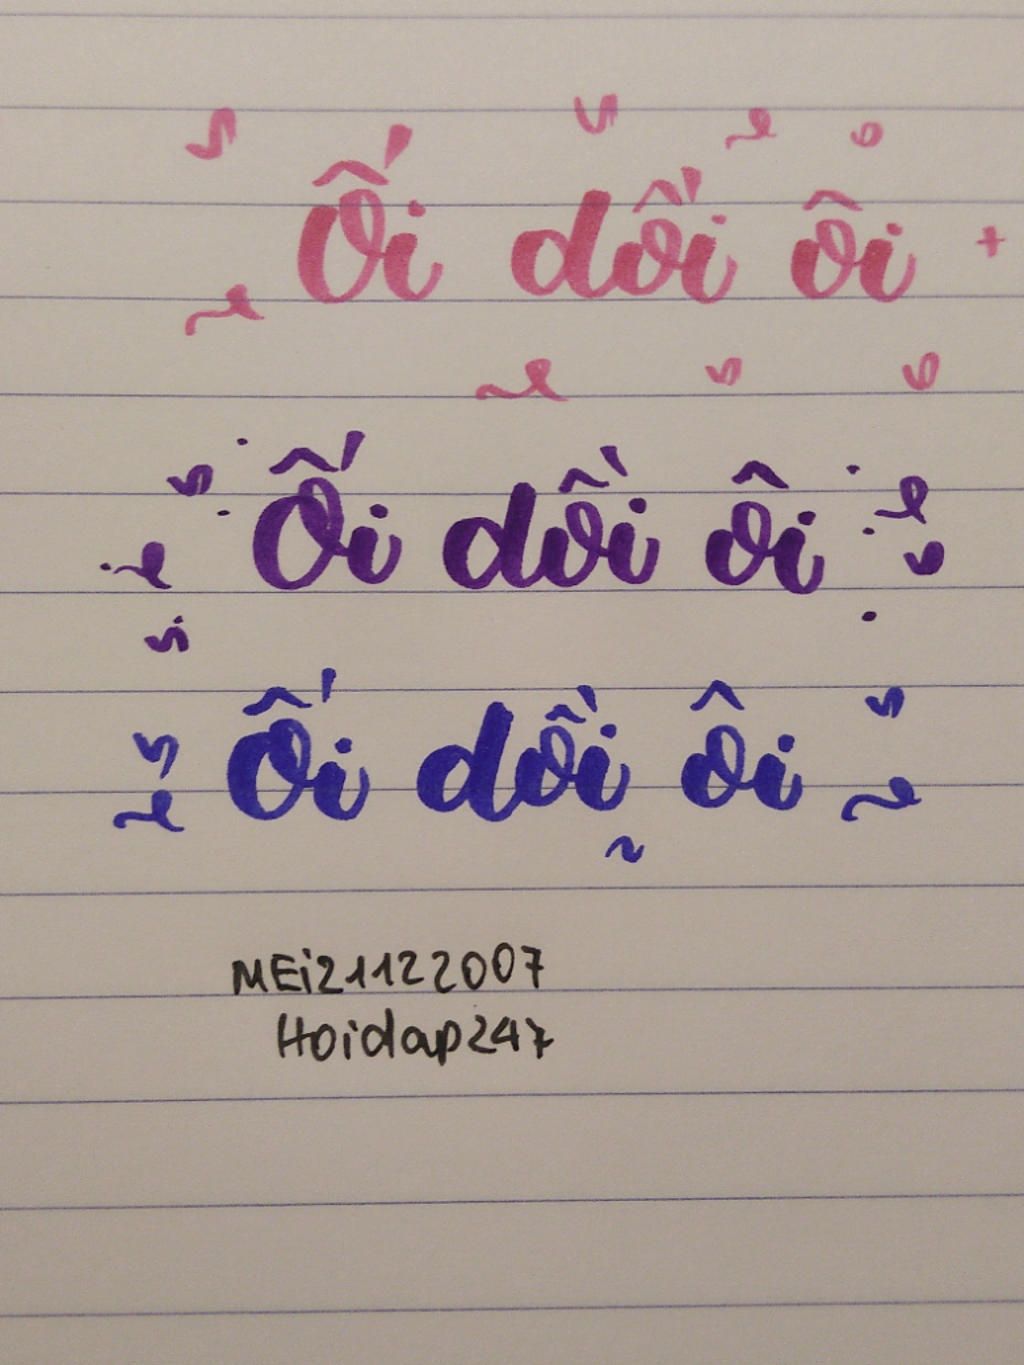 Ối dồi ôi
Ối dồi ôi
Ối dồi ôi
MEi21122007
Hoidap247